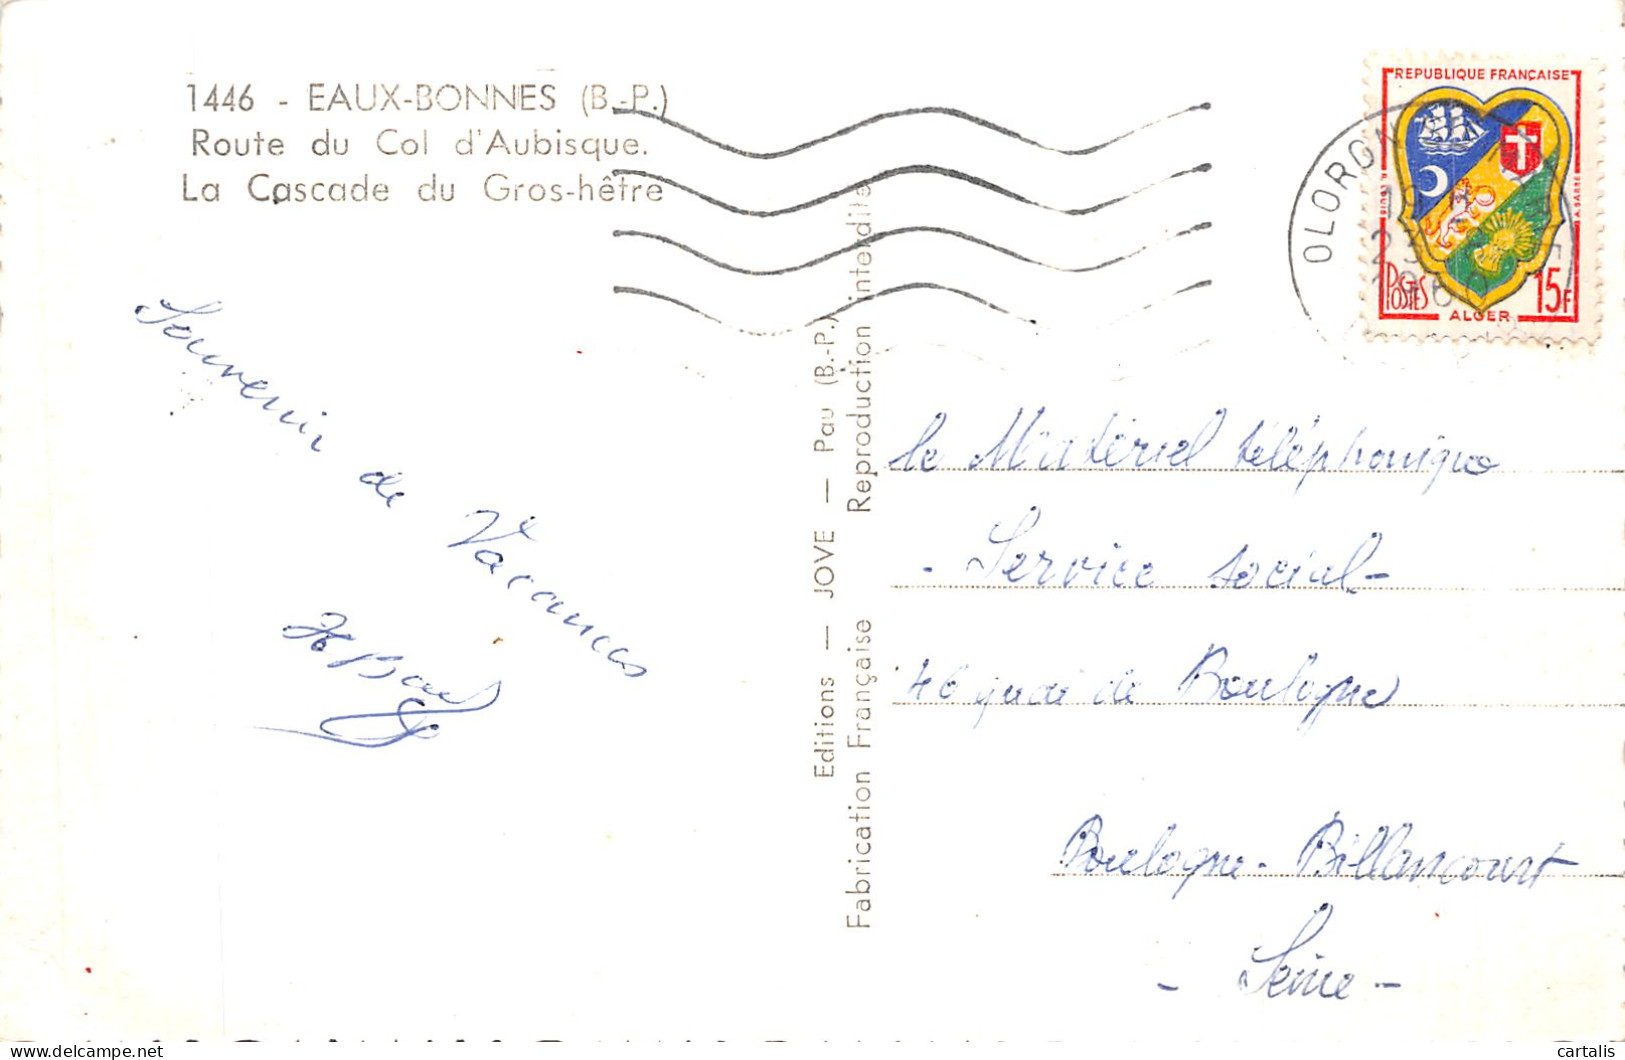 1446 - EAUX-BONNES (B.-P.)
Route du Col d'Aubisque.
La Cascade du Gros-hêtre
REPUBLIQUE FRANÇAISE
POSTES
15F
ALGER
R. LOUIS
A. BARRE
OLORON
19 H
23
1960
Souvenir
de
Vacances
Editions — JOVE — Pau (B.-P.)
Fabrication Française
Reproduction interdite
le Matériel téléphonique
- Service social -
46 quai de Boulogne
Boulogne-Billancourt
- Seine -
cartalis